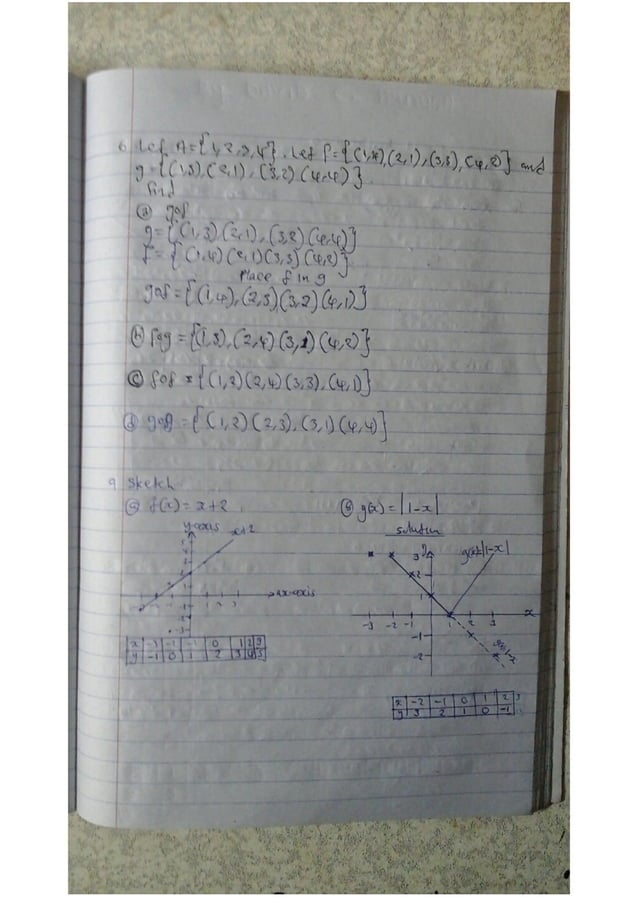 6. Let A = {1, 2, 3, 4}. Let f = {(1,4), (2,1), (3,3), (4,2)} and
g = {(1,3) (2,1), (3,2) (4,4)}.
find
(a) gof
g = {(1,3) (2,1), (3,2) (4,4)}
f = {(1,4) (2,1) (3,3) (4,2)}
Place f in g
gof = {(1,4), (2,3) (3,2) (4,1)}
(b) fog = {(1,3), (2,4) (3,1) (4,2)}
(c) fof = {(1,2) (2,4) (3,3), (4,1)}
(d) gog = {(1,2) (2,3), (3,1) (4,4)}
9 Sketch
(a) f(x) = x+2
(b) g(x) = |1-x|
solution
y-axis
x+2
x-axis
x -3 -2 -1 0 1 2 3
y -1 0 1 2 3 4 5
y
g(x)=|1-x|
3
2
1
-3 -2 -1 1 2 3 x
-1
-2
x -2 -1 0 1 2 3
y 3 2 1 0 -1